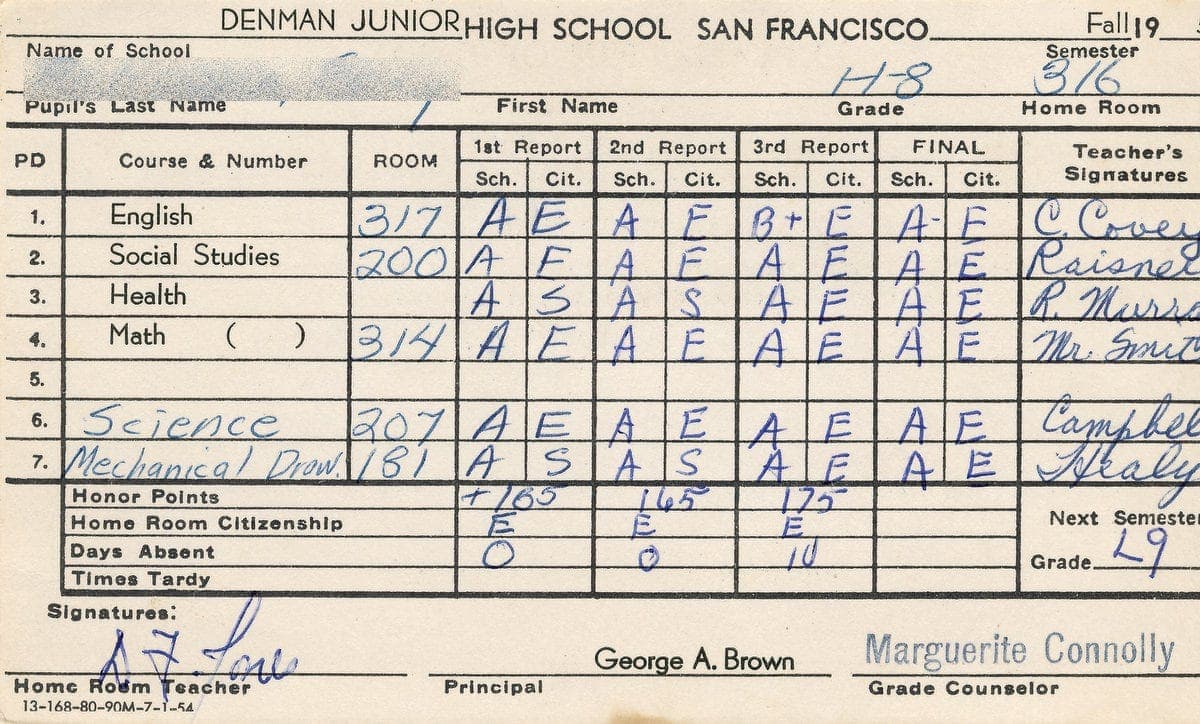 DENMAN JUNIOR HIGH SCHOOL SAN FRANCISCO Fall 19
Name of School Semester
H-8 316
Pupil's Last Name First Name Grade Home Room
PD Course & Number ROOM 1st Report 2nd Report 3rd Report FINAL Teacher's Signatures
Sch. Cit. Sch. Cit. Sch. Cit. Sch. Cit.
1. English 317 A E A E B+ E A- E C. Covey
2. Social Studies 200 A E A E A E A E
3. Health A S A S A E A E R.
4. Math ( ) 314 A E A E A E A E Mr.
5.
6. Science 207 A E A E A E A E
7. Mechanical Draw. 181 A S A S A E A E Healy
Honor Points +165 165 175
Home Room Citizenship E E E
Days Absent 0 0 10
Times Tardy
Next Semester
Grade L9
Signatures:
George A. Brown Marguerite Connolly
Home Room Teacher Principal Grade Counselor
13-168-80-90M-7-1-54